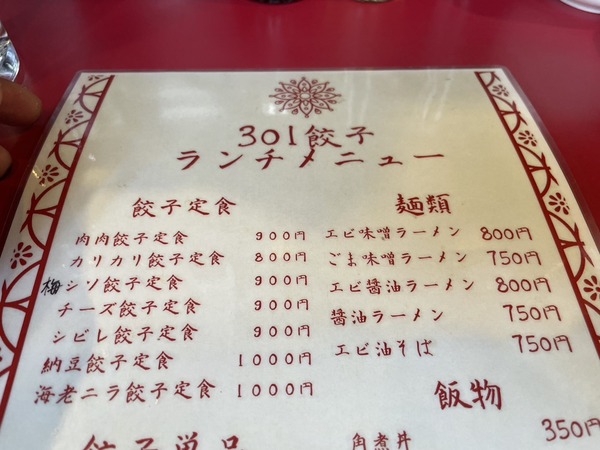 301餃子
ランチメニュー
餃子定食
肉肉餃子定食 900円
カリカリ餃子定食 800円
梅シソ餃子定食 900円
チーズ餃子定食 900円
シビレ餃子定食 900円
納豆餃子定食 1000円
海老ニラ餃子定食 1000円
餃子単品
麺類
エビ味噌ラーメン 800円
ごま味噌ラーメン 750円
エビ醤油ラーメン 800円
醤油ラーメン 750円
エビ油そば 750円
飯物
角煮丼 350円